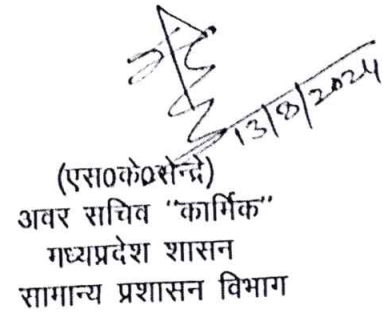 13/8/2024
(एस0के0सेन्द्रे)
अवर सचिव "कार्मिक"
मध्यप्रदेश शासन
सामान्य प्रशासन विभाग